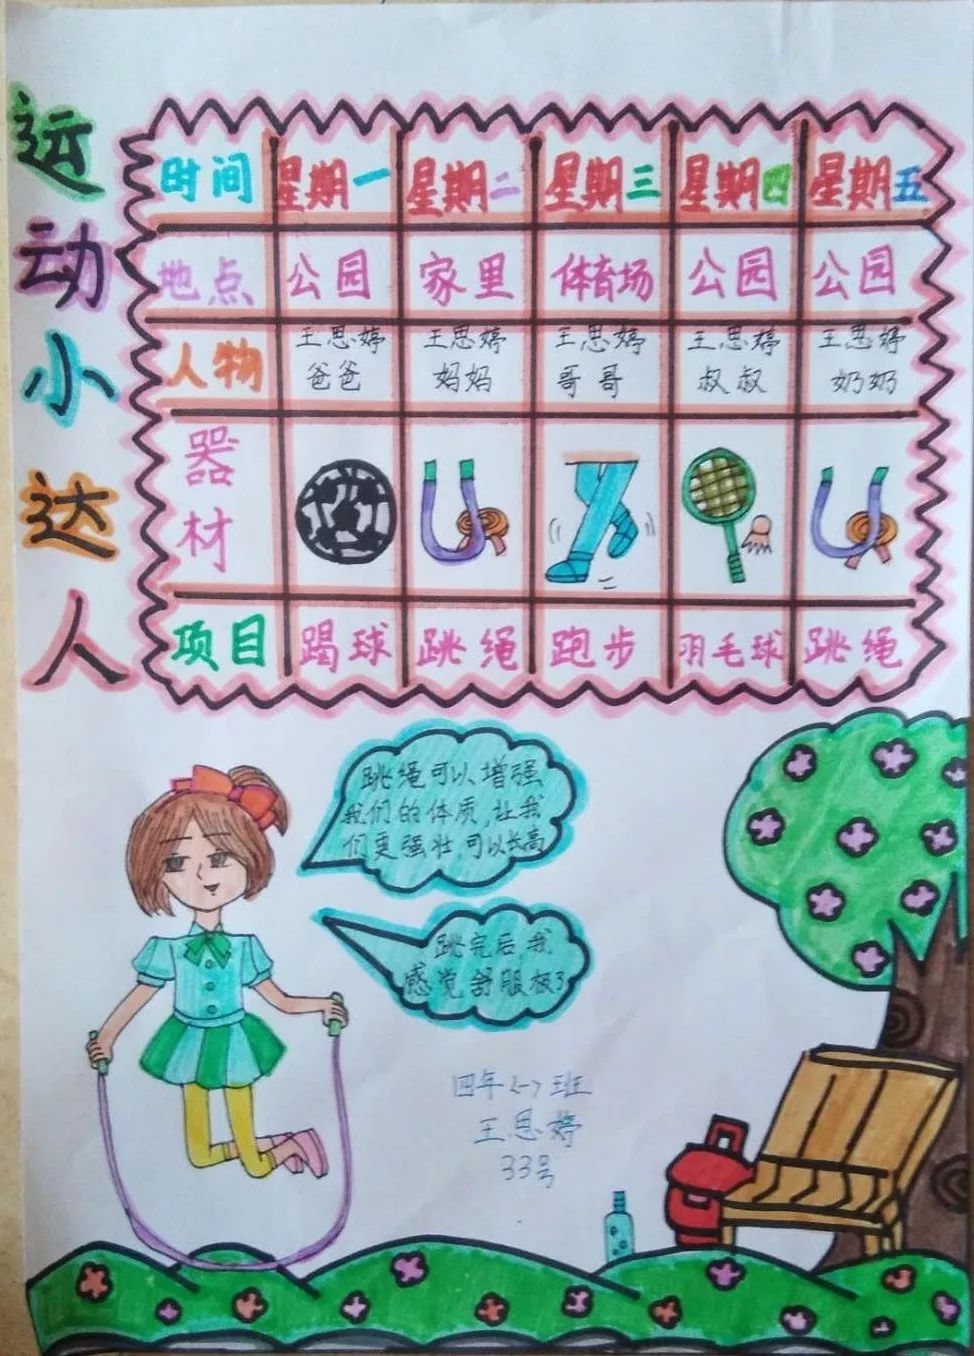 运动小达人
时间 星期一 星期二 星期三 星期四 星期五
地点 公园 家里 体育场 公园 公园
人物 王思婷 爸爸 王思婷 妈妈 王思婷 哥哥 王思婷 叔叔 王思婷 奶奶
器材
项目 踢球 跳绳 跑步 羽毛球 跳绳
跳绳可以增强
我们的体质,让我
们更强壮,可以长高
跳完后,我
感觉舒服极了
四年<一>班
王思婷
33号